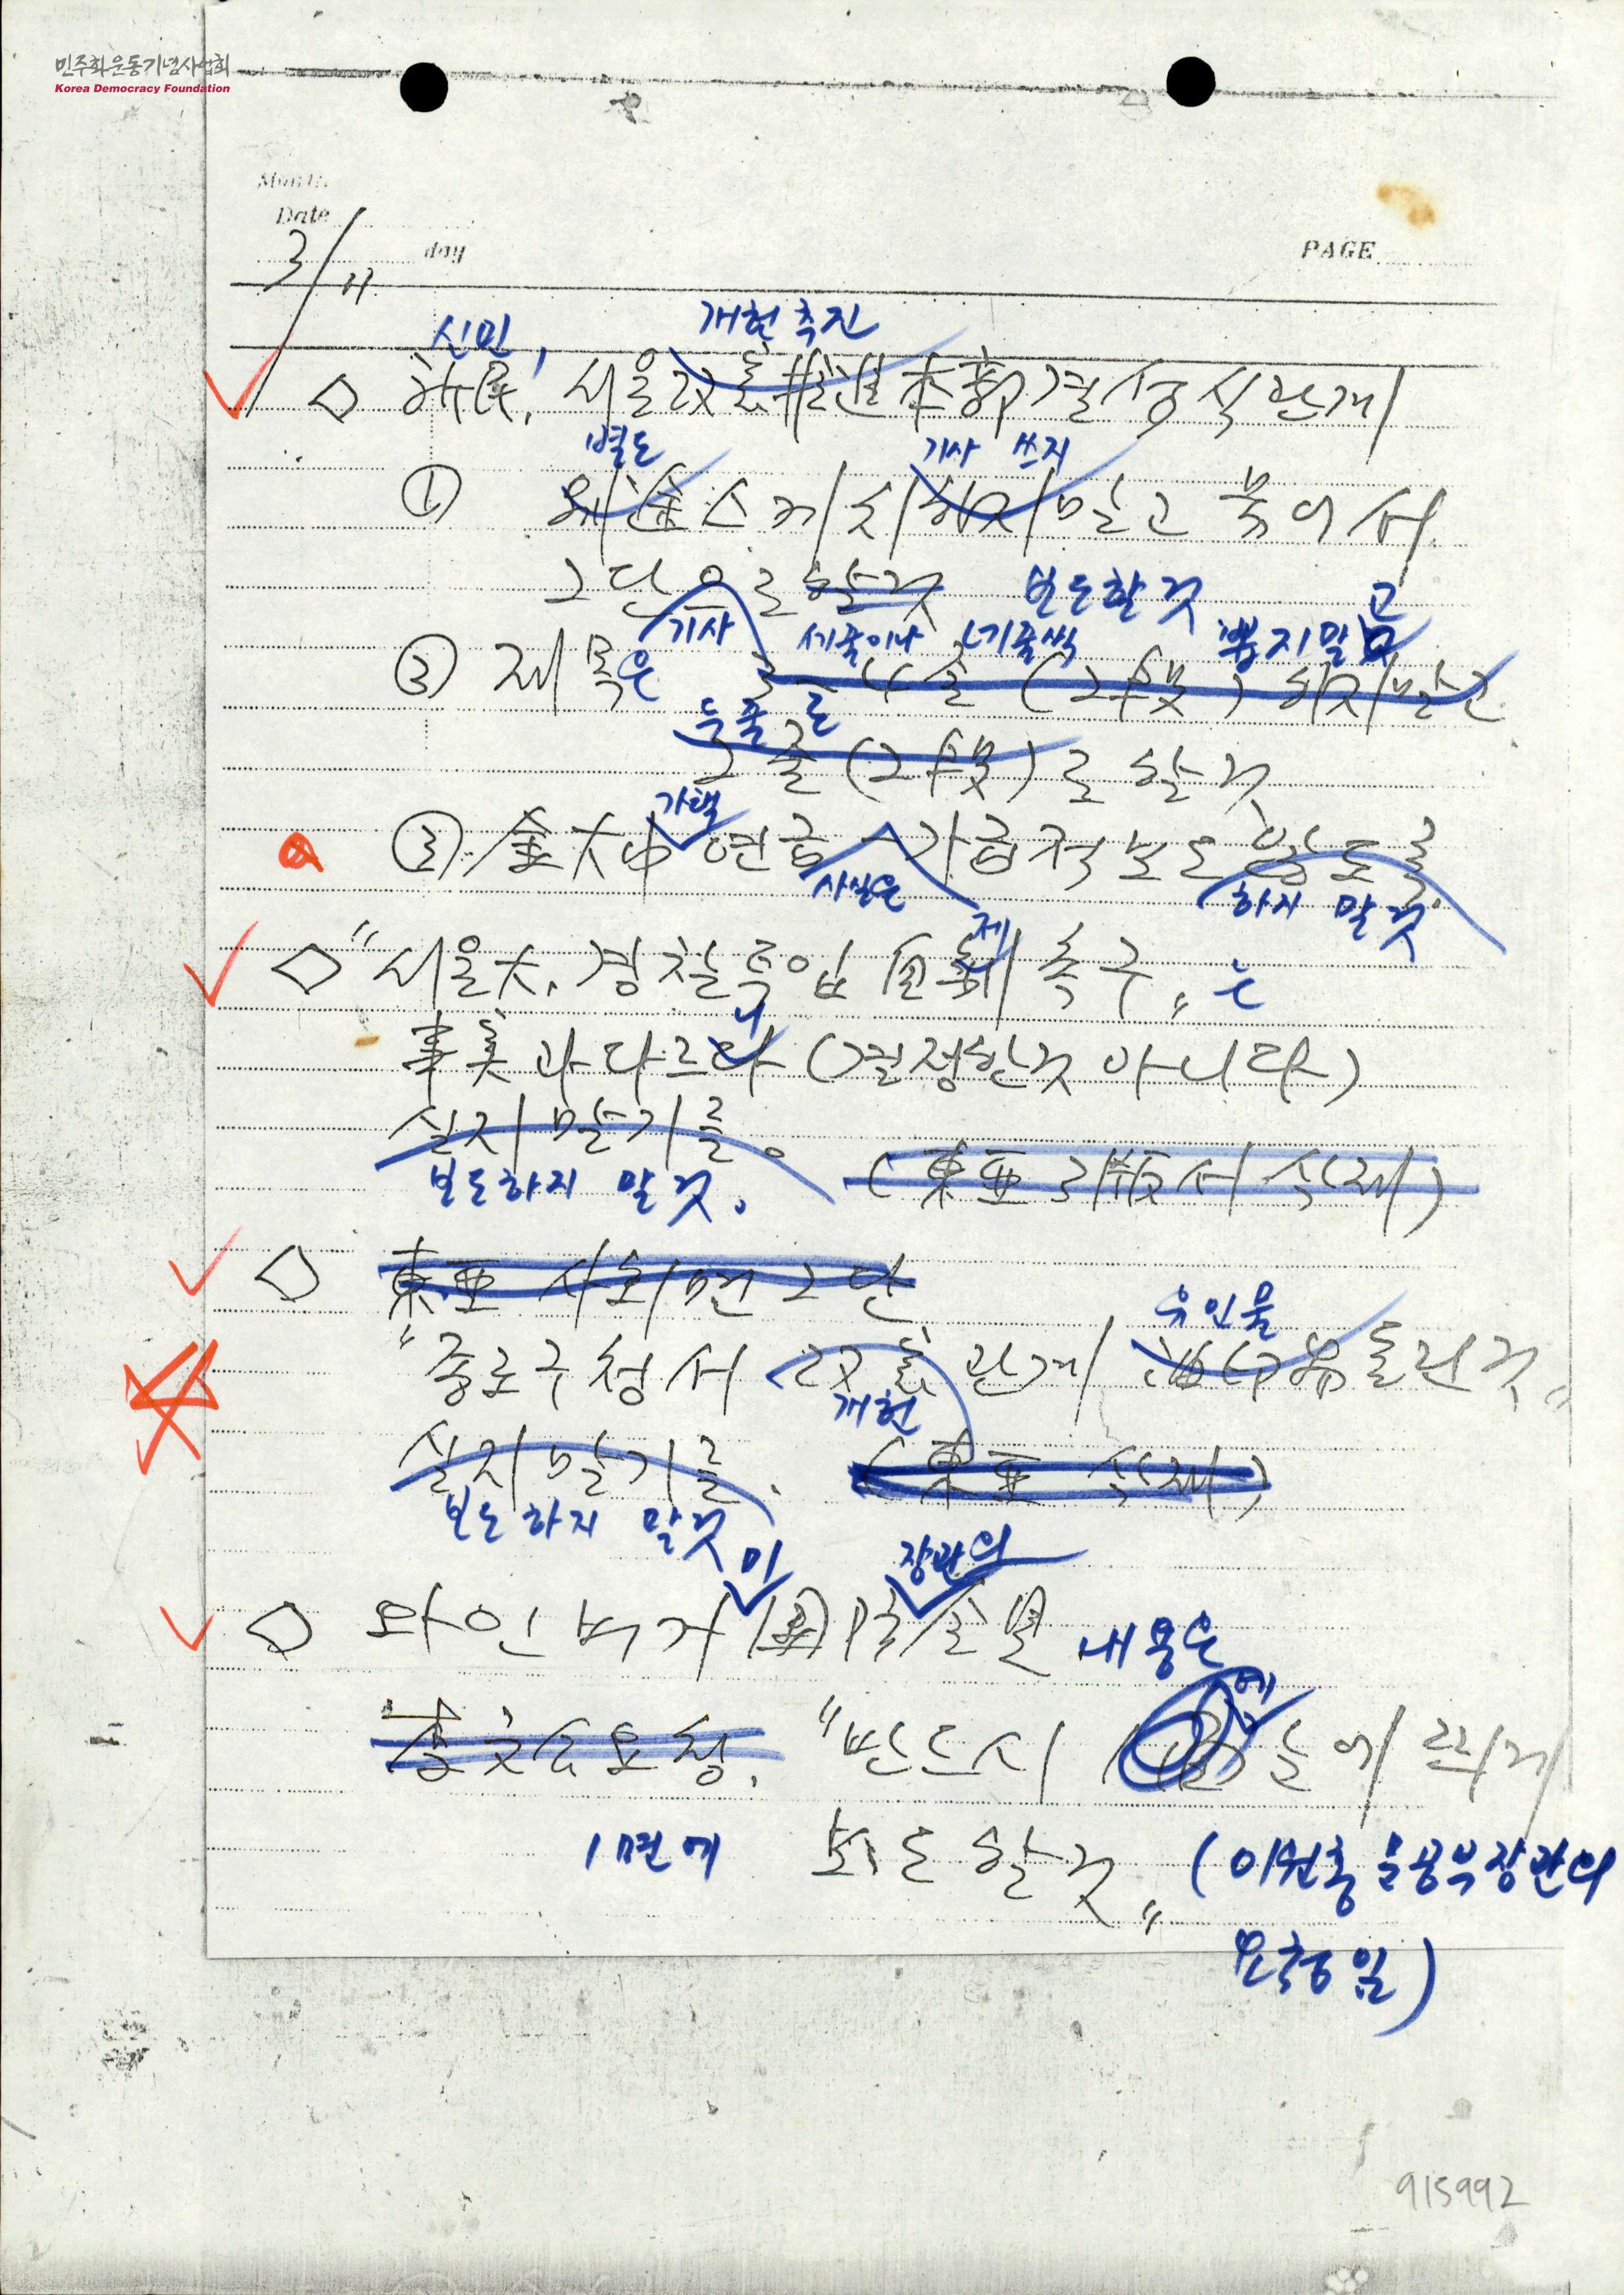 민주화운동기념사업회
Korea Democracy Foundation
Month.
Date
day
PAGE
3/11
신민, 개헌 추진
◇ 新民, 서울改憲推進本部결성식관계
별도 기사 쓰지
① 스케치하지말고 묶어서
2단으로할것 보도할 것
기사 세줄이나 네기줄씩 뽑지말고
② 제목은 3-4줄( ) 하지말고
두줄로
2줄( )로 할 것
가택
③ 金大中 연금 가급적 보도않도록.
사실은 하지 말 것
제
◇ "서울大, 경찰투입 촉구" 는
니
事実과 다르다 (결정한것 아니다)
싣지말기를.
보도하지 말 것. (東亜 3版서 삭제)
◇ 東亜 사회면 2단
유인물
"종로구청서 改憲관계 油印物돌린것"
개헌
싣지말기를. (東亜 삭제)
보도하지 말 것
미 장관의
◇ 와인버거 国防 회견 내용은
에
李 文公요청. "반드시 눈에 띄게
1면에 보도할것" (이원홍 문공부장관의
요청임)
915992